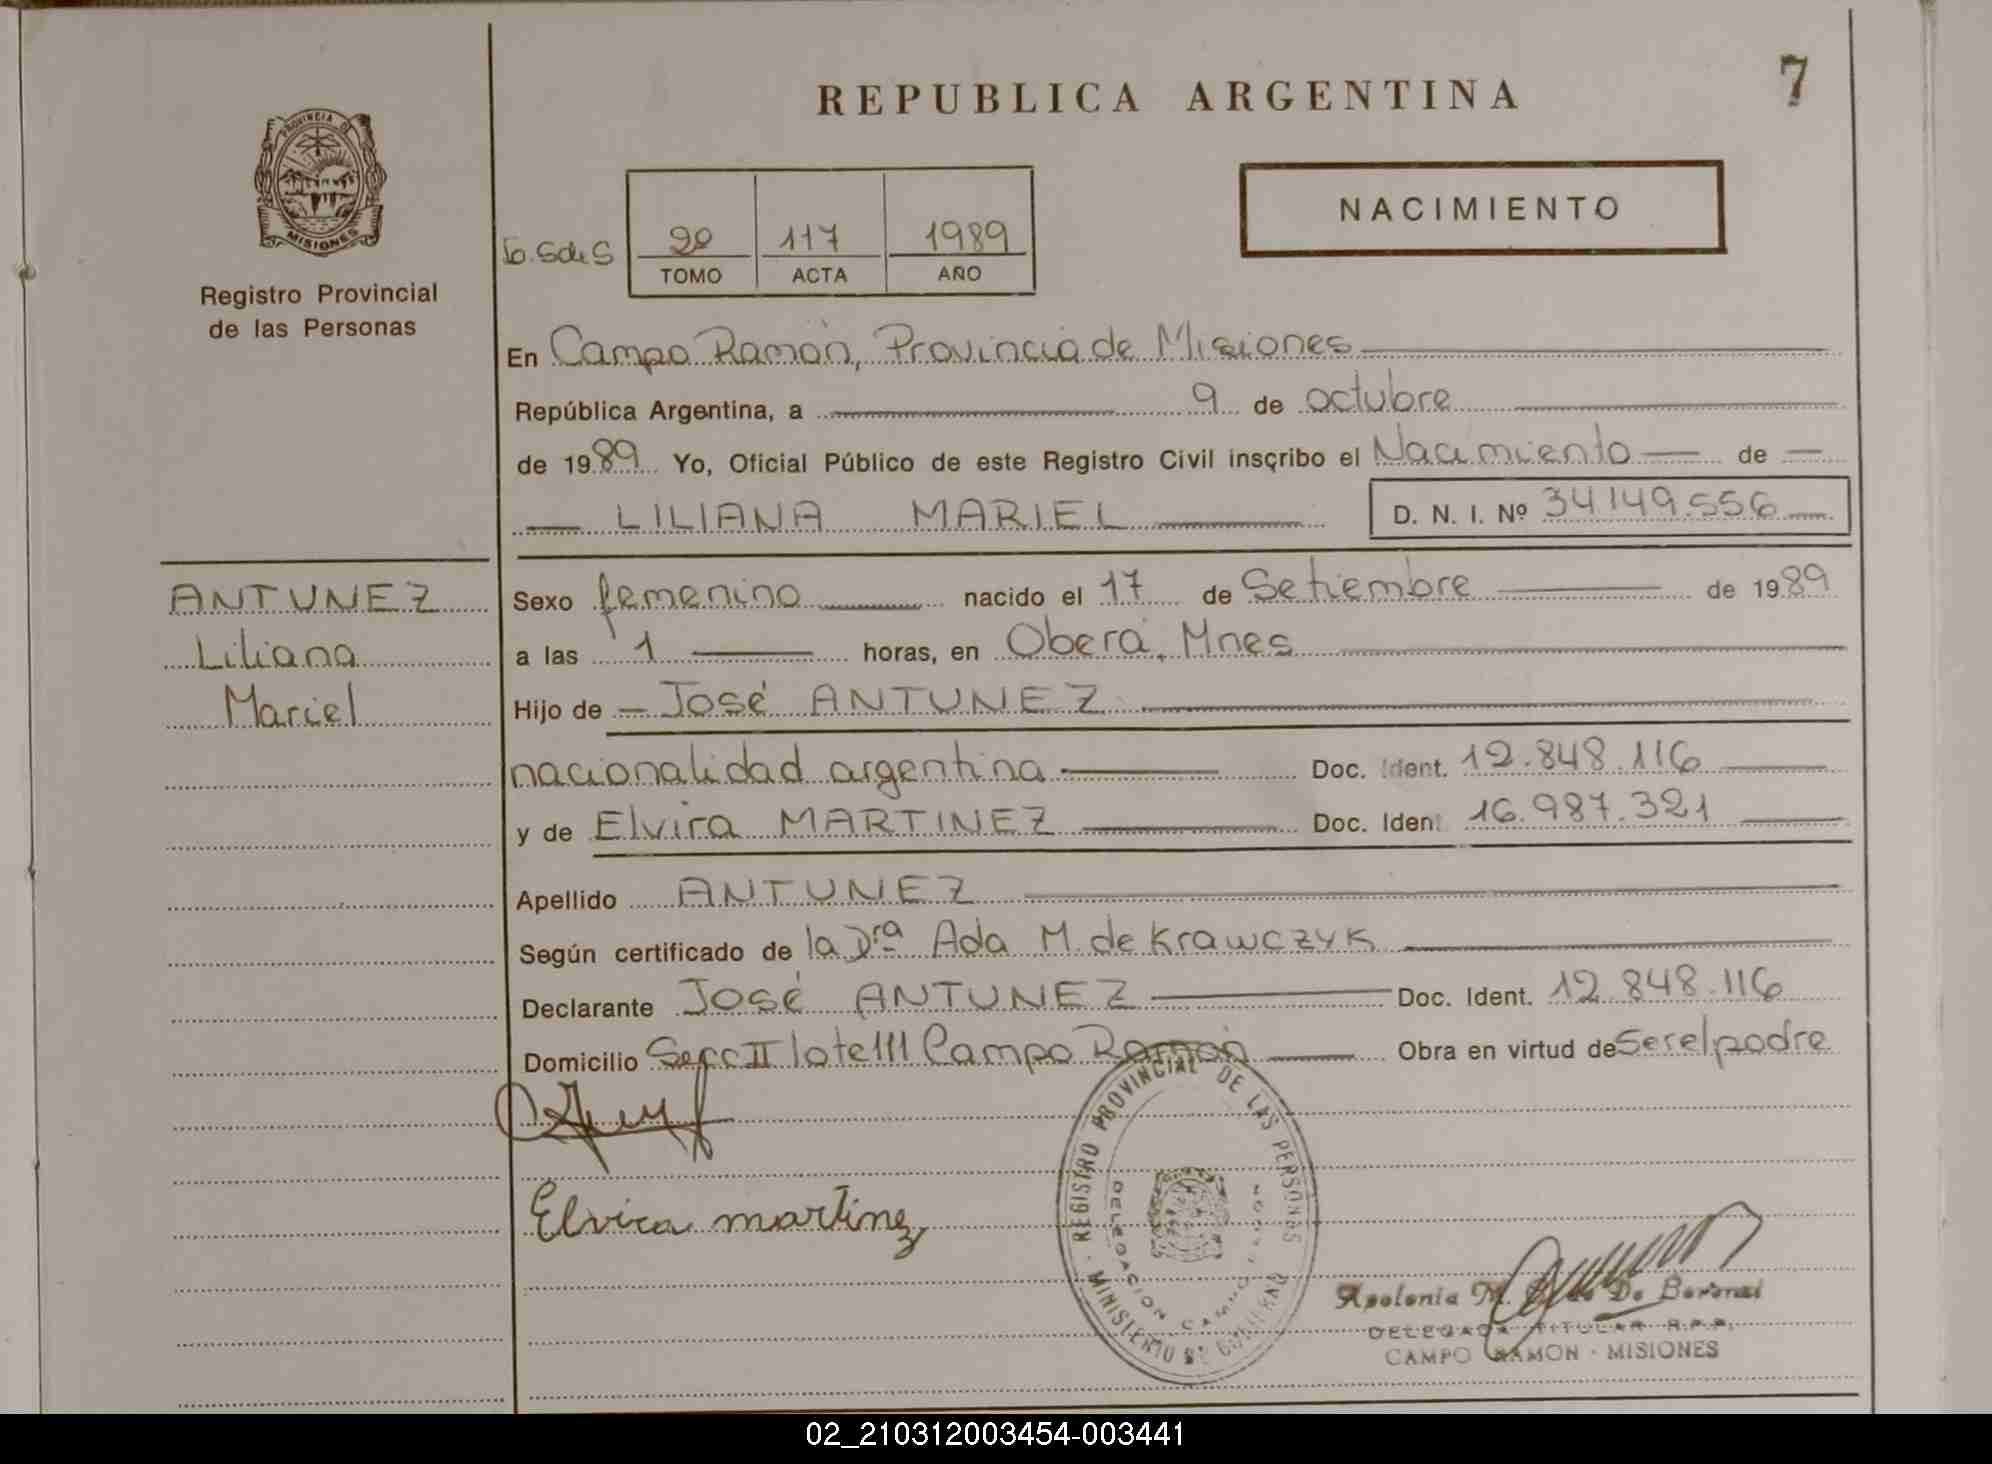 REPUBLICA ARGENTINA
7
PROVINCIA DE
MISIONES
Registro Provincial
de las Personas
NACIMIENTO
20 117 1989
TOMO ACTA AÑO
En Campo Ramón, Provincia de Misiones
República Argentina, a 9 de octubre
de 1989 Yo, Oficial Público de este Registro Civil inscribo el Nacimiento de
LILIANA MARIEL D. N. I. Nº 34149.556
ANTUNEZ
Liliana
Mariel
Sexo femenino nacido el 17 de Setiembre de 1989
a las 1 horas, en Oberá, Mnes
Hijo de José ANTUNEZ
nacionalidad argentina Doc. Ident. 12.848.116
y de Elvira MARTINEZ Doc. Ident 16.987.321
Apellido ANTUNEZ
Según certificado de la Dra Ada M. de Krawczyk
Declarante José ANTUNEZ Doc. Ident. 12.848.116
Domicilio Secc II lote 111 Campo Ramón Obra en virtud de ser el padre
Elvira martinez
REGISTRO PROVINCIAL DE LAS PERSONAS
MINISTERIO DE GOBIERNO
DELEGACION CAMPO
Apolonia M. De
DELEGADA TITULAR R.P.P.
CAMPO RAMON - MISIONES
02_210312003454-003441